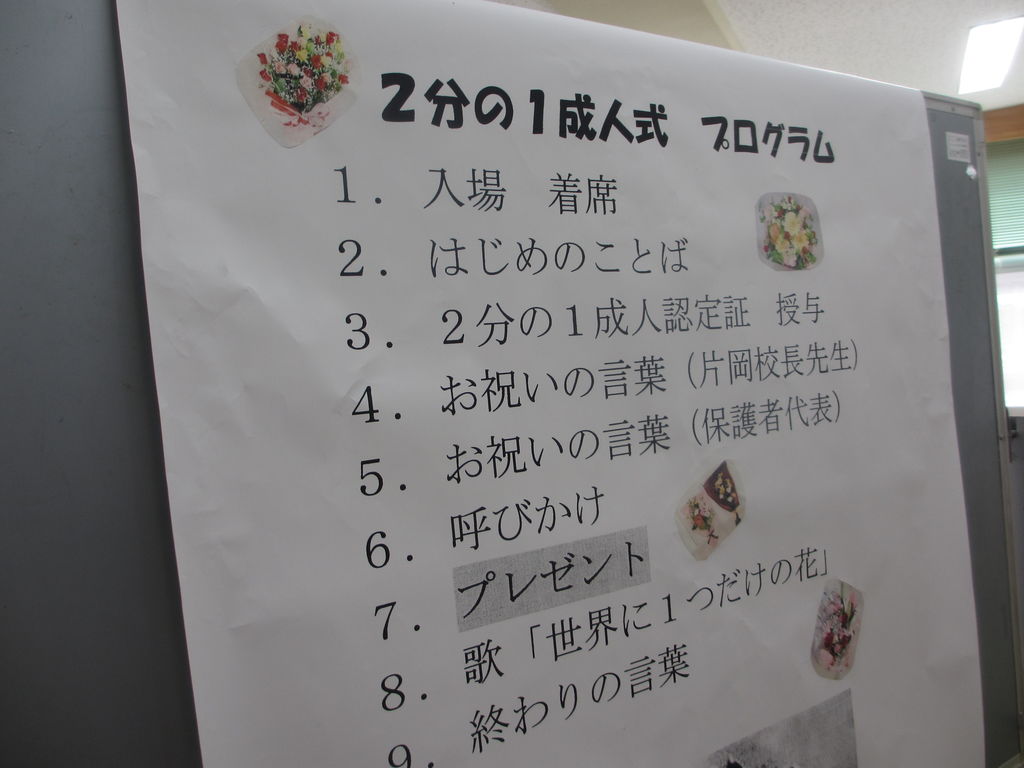 2分の1成人式 プログラム
1. 入場 着席
2. はじめのことば
3. 2分の1成人認定証 授与
4. お祝いの言葉(片岡校長先生)
5. お祝いの言葉(保護者代表)
6. 呼びかけ
7. プレゼント
8. 歌「世界に1つだけの花」
9. 終わりの言葉